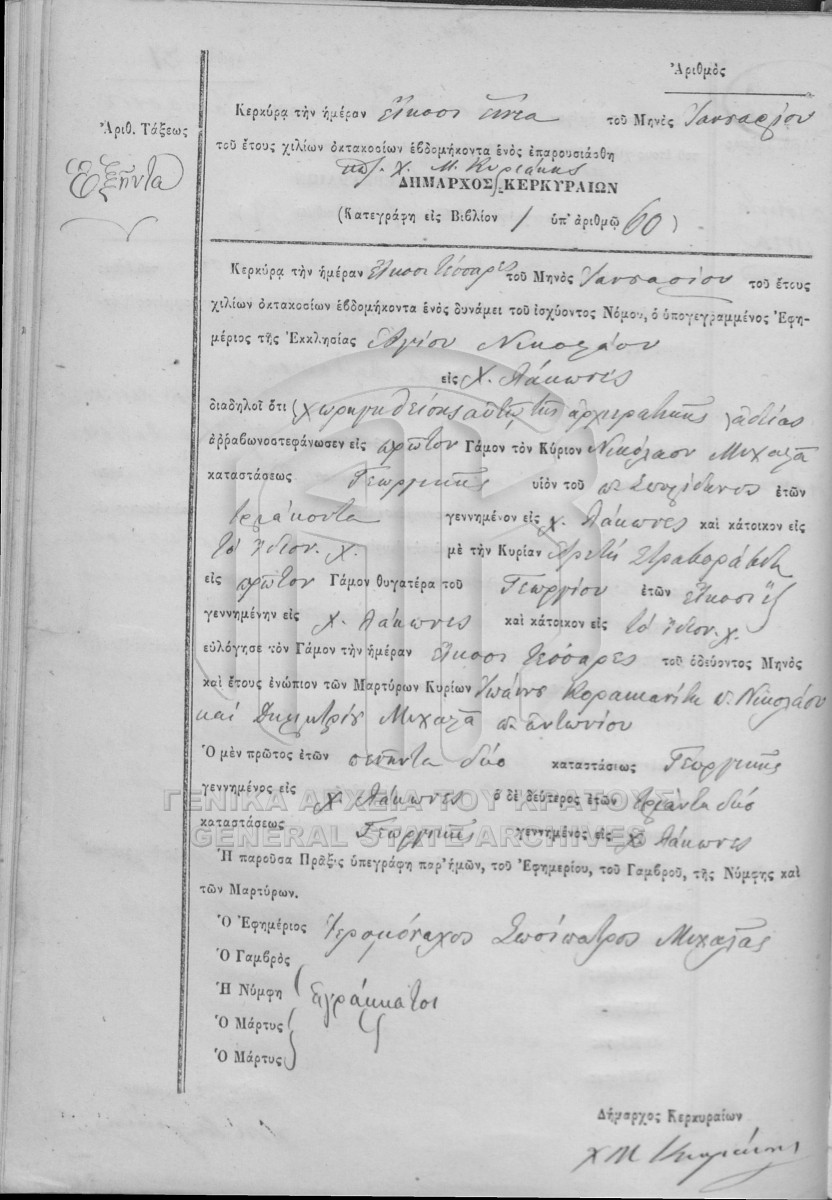 Ἀριθμὸς
Ἀριθ. Τάξεως
Ἑξῆντα
Κερκύρᾳ τὴν ἡμέραν εἴκοσι ἐννέα τοῦ Μηνὸς Ἰανουαρίου
τοῦ ἔτους χιλίων ὀκτακοσίων ἑβδομήκοντα ἑνὸς ἐπαρουσιάσθη
Χ. Μ. Κυριάκης
ΔΗΜΑΡΧΟΣ ΚΕΡΚΥΡΑΙΩΝ
(Κατεγράφη εἰς Βιβλίον 1 ὑπ' ἀριθμῷ 60)
Κερκύρᾳ τὴν ἡμέραν εἴκοσι τέσσαρες τοῦ Μηνὸς Ἰανουαρίου τοῦ ἔτους
χιλίων ὀκτακοσίων ἑβδομήκοντα ἑνὸς δυνάμει τοῦ ἰσχύοντος Νόμου, ὁ ὑπογεγραμμένος Ἐφη-
μέριος τῆς Ἐκκλησίας Ἁγίου Νικολάου
εἰς Χ. Λάκωνες
διαδηλοῖ ὅτι (χωρηγηθείσης αὐτῷ τῆς ἀρχιερατικῆς ἀδείας
ἀῤῥαβωνοστεφάνωσεν εἰς πρῶτον Γάμον τὸν Κύριον Νικόλαον Μιχαλᾶ
καταστάσεως Γεωργικῆς υἱὸν τοῦ π. Σπυρίδωνος ἐτῶν
τριάκοντα γεννημένον εἰς χ. Λάκωνες καὶ κάτοικον εἰς
τὸ ἴδιον χ. μὲ τὴν Κυρίαν Ἀρετὴ
εἰς πρῶτον Γάμον θυγατέρα τοῦ Γεωργίου ἐτῶν εἴκοσι ἕξ
γεννημένην εἰς χ. Λάκωνες καὶ κάτοικον εἰς τὸ ἴδιον χ.
εὐλόγησε τὸν Γάμον τὴν ἡμέραν εἴκοσι τέσσαρες τοῦ ὁδεύοντος Μηνὸς
καὶ ἔτους ἐνώπιον τῶν Μαρτύρων Κυρίων Ἰωάννη Κορακιανίτη υ. Νικολάου
καὶ Δημητρίου Μιχαλᾶ π. Ἀντωνίου
Ὁ μὲν πρῶτος ἐτῶν πενῆντα δύο καταστάσεως Γεωργικῆς
γεννημένος εἰς χ. Λάκωνες ὁ δὲ δεύτερος ἐτῶν τριάντα δύο
καταστάσεως Γεωργικῆς γεννημένος εἰς χ. Λάκωνες
ΓΕΝΙΚΑ ΑΡΧΕΙΑ ΤΟΥ ΚΡΑΤΟΥΣ
GENERAL STATE ARCHIVES
Ἡ παροῦσα Πρᾶξις ὑπεγράφη παρ' ἡμῶν, τοῦ Ἐφημερίου, τοῦ Γαμβροῦ, τῆς Νύμφης καὶ
τῶν Μαρτύρων.
Ὁ Ἐφημέριος Ἱερομόναχος Σωσίπατρος Μιχαλᾶς
Ὁ Γαμβρὸς
Ἡ Νύμφη ἀγράμματοι
Ὁ Μάρτυς
Ὁ Μάρτυς
Δήμαρχος Κερκυραίων
Χ Μ Κυριάκης